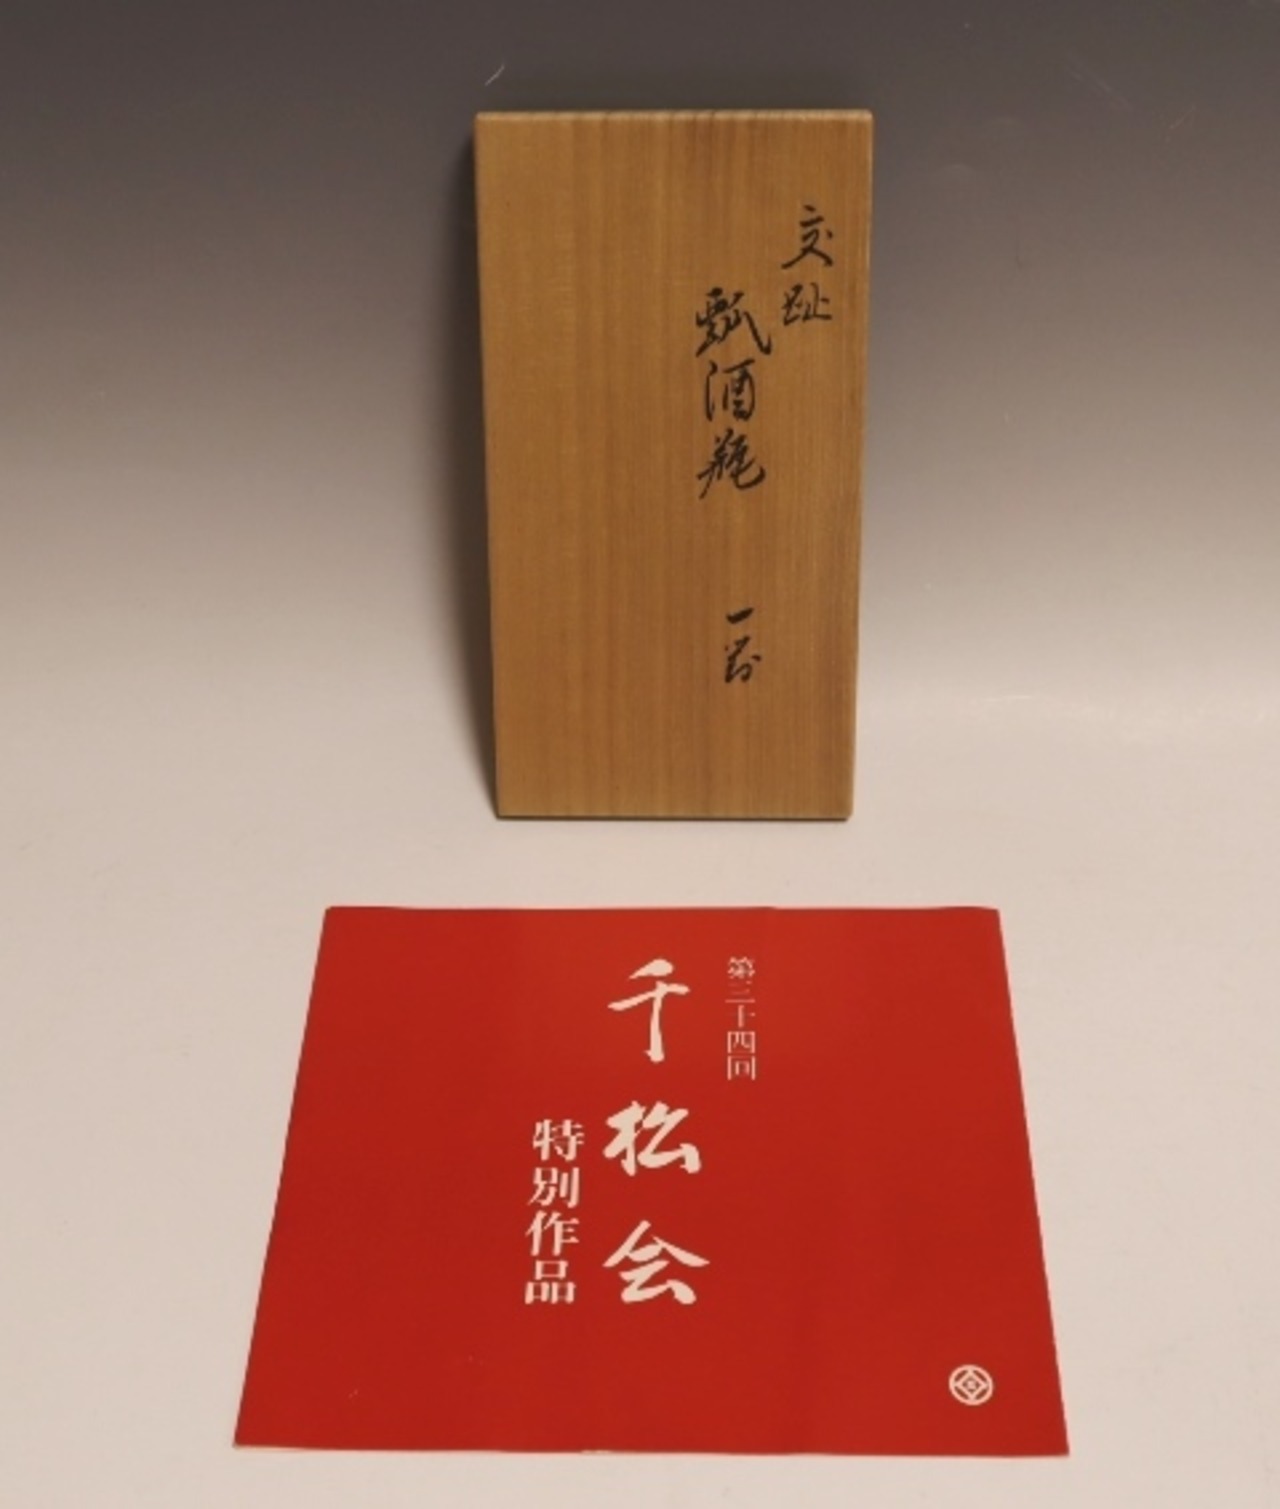 交趾
瓢酒瓶
一対
第三十四回
千松会
特別作品